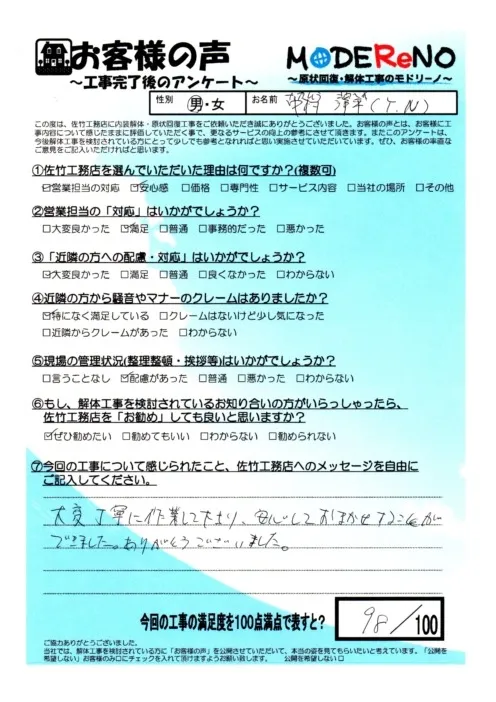 お客様の声
～工事完了後のアンケート～
MODEReNO
～原状回復・解体工事のモドリーノ～
性別 男・女 お名前 (T.N)
この度は、佐竹工務店に内装解体・原状回復工事をご依頼いただき誠にありがとうございました。お客様の声とは、お客様に工
事内容について感じたままに評価していただく事で、更なるサービスの向上の参考にさせて頂きます。またこのアンケートは、
今後解体工事を検討されている方にとって少しでも参考となれればと思い実施させていただいています。ぜひ、お客様の率直な
ご意見をご記入いただければと思います。
①佐竹工務店を選んでいただいた理由は何ですか?(複数可)
☑営業担当の対応 ☑安心感 □価格 □専門性 □サービス内容 □当社の場所 □その他
②営業担当の「対応」はいかがでしょうか?
□大変良かった ☑満足 □普通 □事務的だった □悪かった
③「近隣の方への配慮・対応」はいかがでしょうか?
☑大変良かった □満足 □普通 □良くなかった □わからない
④近隣の方から騒音やマナーのクレームはありましたか?
☑特になく満足している □クレームはないけど少し気になった
□近隣からクレームがあった □わからない
⑤現場の管理状況(整理整頓・挨拶等)はいかがでしょうか?
□言うことなし ☑配慮があった □普通 □悪かった □わからない
⑥もし、解体工事を検討されているお知り合いの方がいらっしゃったら、
佐竹工務店を「お勧め」しても良いと思いますか?
☑ぜひ勧めたい □勧めてもいい □わからない □勧められない
⑦今回の工事について感じられたこと、佐竹工務店へのメッセージを自由に
ご記入してください。
大変丁寧に作業して下さり、安心しておまかせすることが
できました。ありがとうございました。
今回の工事の満足度を100点満点で表すと? 98/100
ご協力ありがとうございました。
当社では、解体工事を検討されている方に「お客様の声」を公開させていただいて、本当の姿を見てもらいたいと考えています。「公開を
希望しない」お客様のみ□にチェックを入れて頂けますようお願い致します。 公開を希望しない□